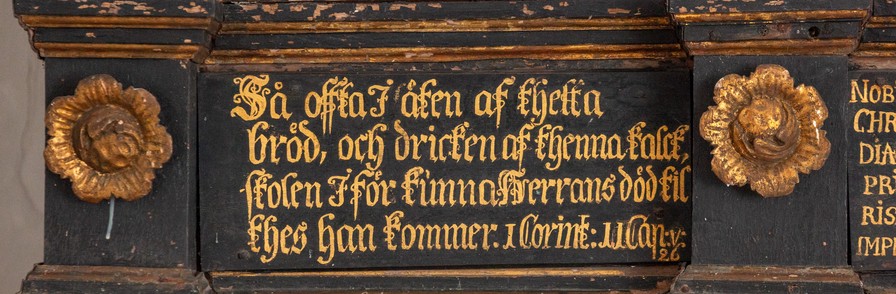 Så offta I äten af thetta
bröd, och dricken af thenna kalck,
skolen I för kunna Herrans död til
thes han kommer. 1 Corint: 11 Cap: v:
26
NOB
CHR
DIA
PRI
RIS
IMP